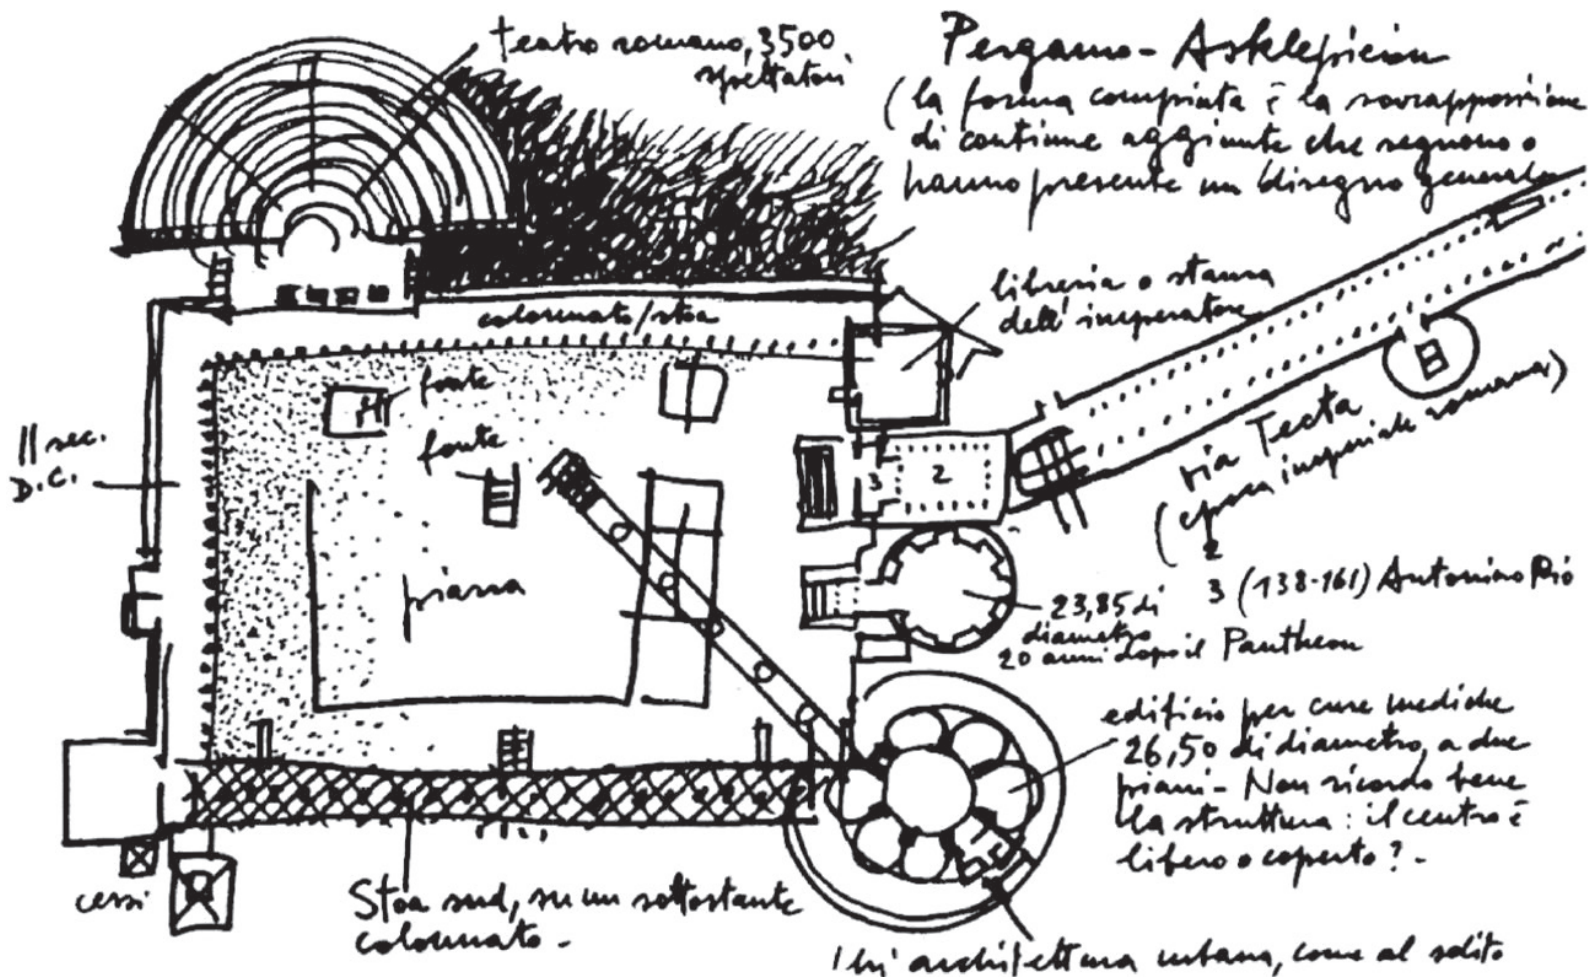 teatro romano, 3500
spettatori
Pergamo - Asklepieion
(la forma compiuta è la sovrapposizione
di continue aggiunte che seguono o
hanno presente un disegno generale
libreria o stanza
dell'imperatore
colonnato/stoa
fonte
fonte
II sec.
D.C.
3
2
via Tecta
(epoca imperiale romana)
piazza
2
3 (138-161) Antonino Pio
23,85 di
diametro
20 anni dopo il Pantheon
edificio per cure mediche
26,50 di diametro, a due
piani - Non ricordo bene
la struttura: il centro è
libero o coperto? -
cessi
Stoa sud, su un sottostante
colonnato -
architettura urbana, come al solito